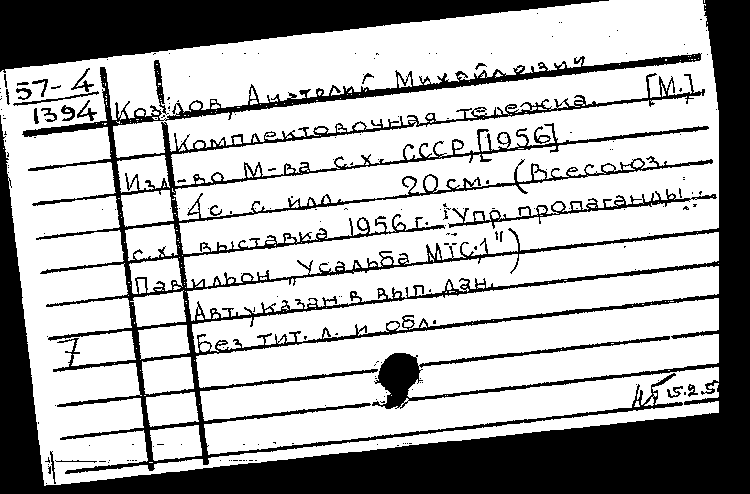 57-4
1394
Козлов, Анатолий Михайлович
Комплектовочная тележка. [М.],
Изд-во М-ва с.х. СССР, [1956].
4 с. с илл. 20 см. (Всесоюз.
с.х. выставка 1956 г. Упр. пропаганды.
Павильон „Усадьба МТС,1")
Авт. указан в вып. дан.
Без тит. л. и обл.
7
15.2.5